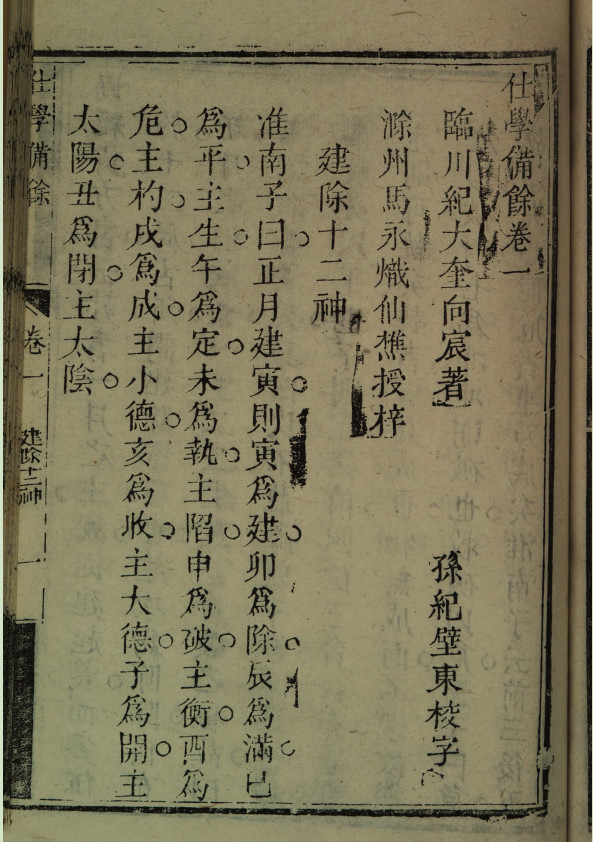 仕學備餘卷一
臨川紀大奎向宸著
孫紀壁東校字
滁州馬永熾仙樵授梓
建除十二神
淮南子曰正月建寅則寅爲建卯爲除辰爲滿巳
爲平主生午爲定未爲執主陷申爲破主衡酉爲
危主杓戌爲成主小德亥爲收主大德子爲開主
太陽丑爲閉主太陰
仕學備餘
卷一
建除十二神
一